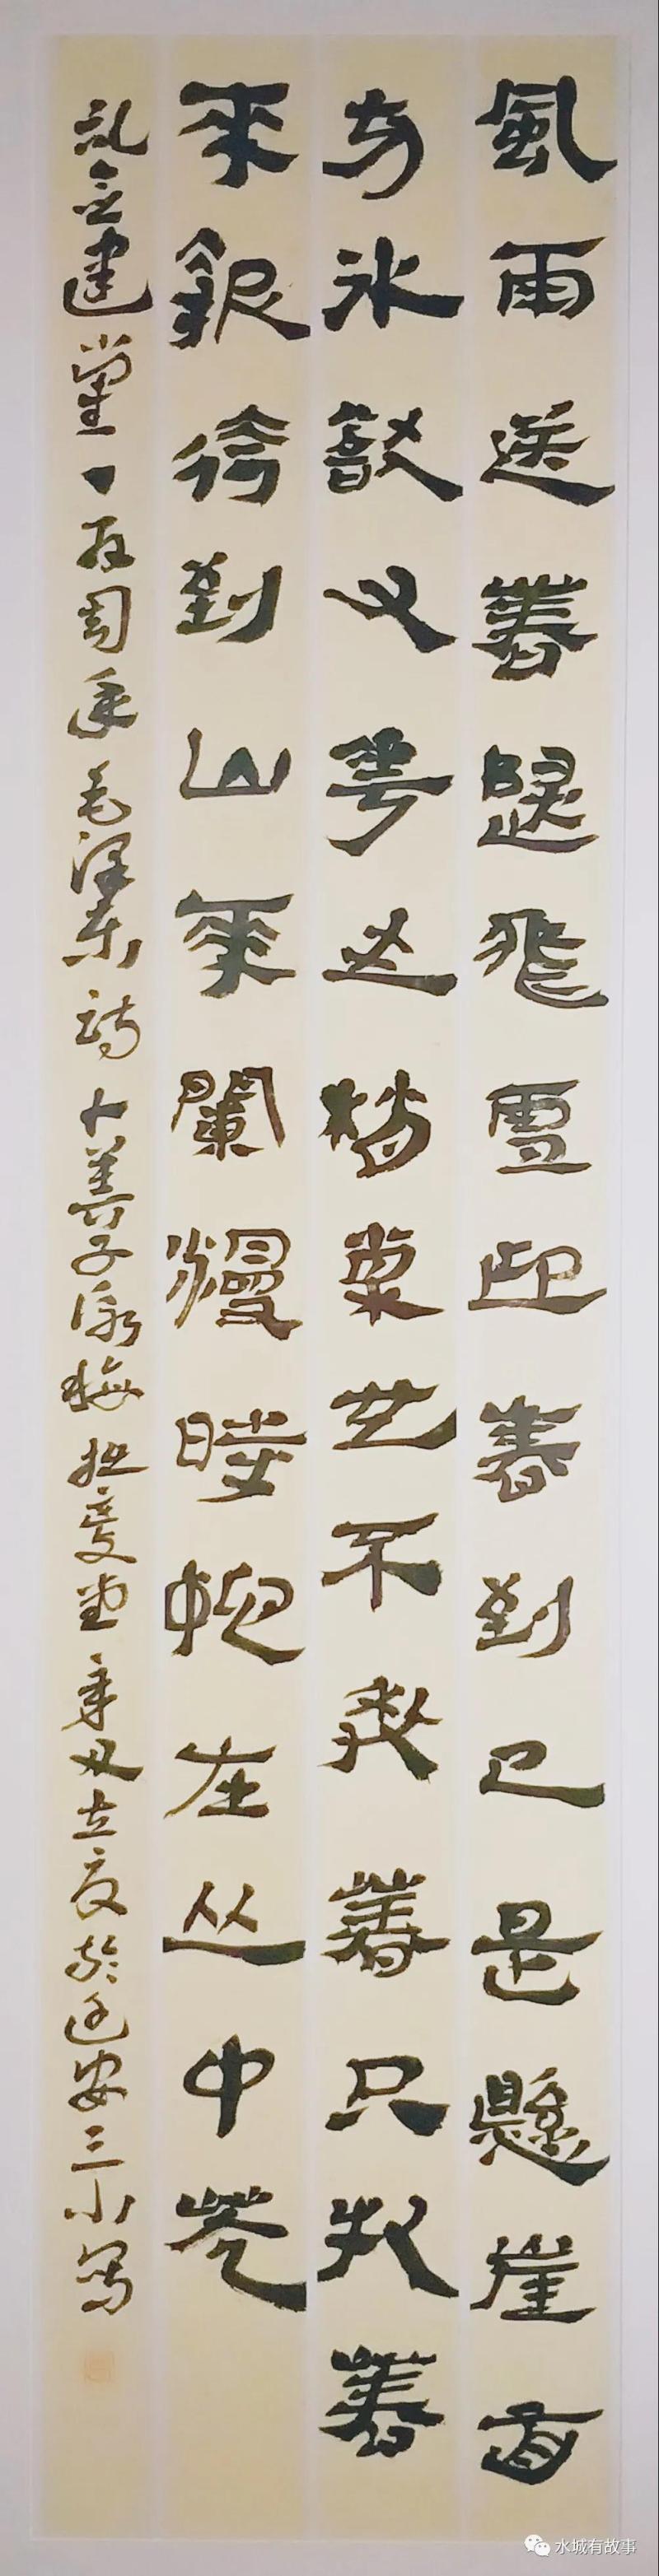 風雨送春歸飛雪迎春到已是懸崖百
丈冰猷又花枝俏也不爭春只把春
來報待到山花爛漫時她在丛中笑
紀念建党一百周年毛泽东诗卜算子咏梅 辛丑立夏於延安三小写
水城有故事